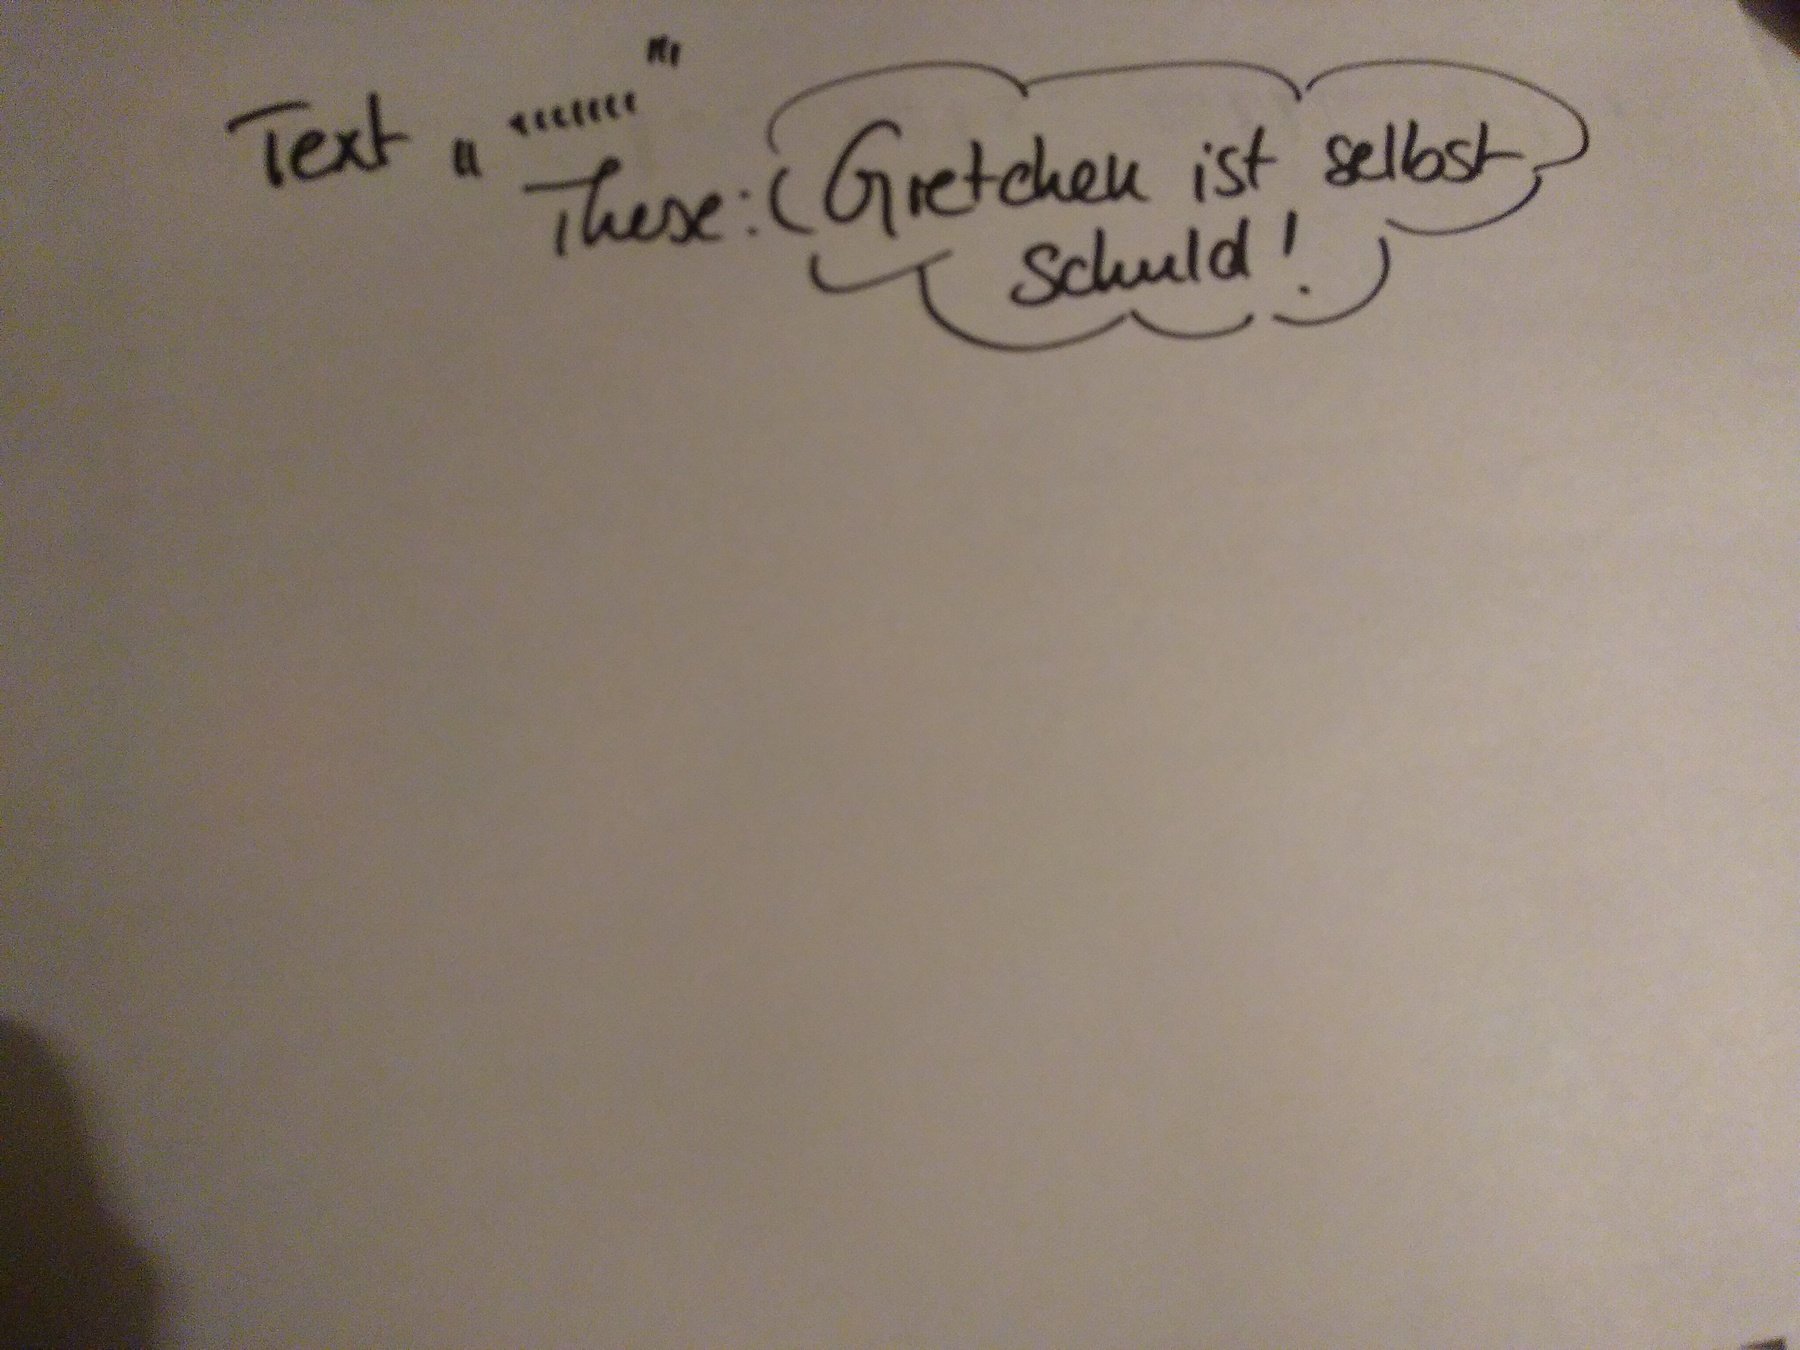 Text " ''''''' "
These: Gretchen ist selbst
schuld!